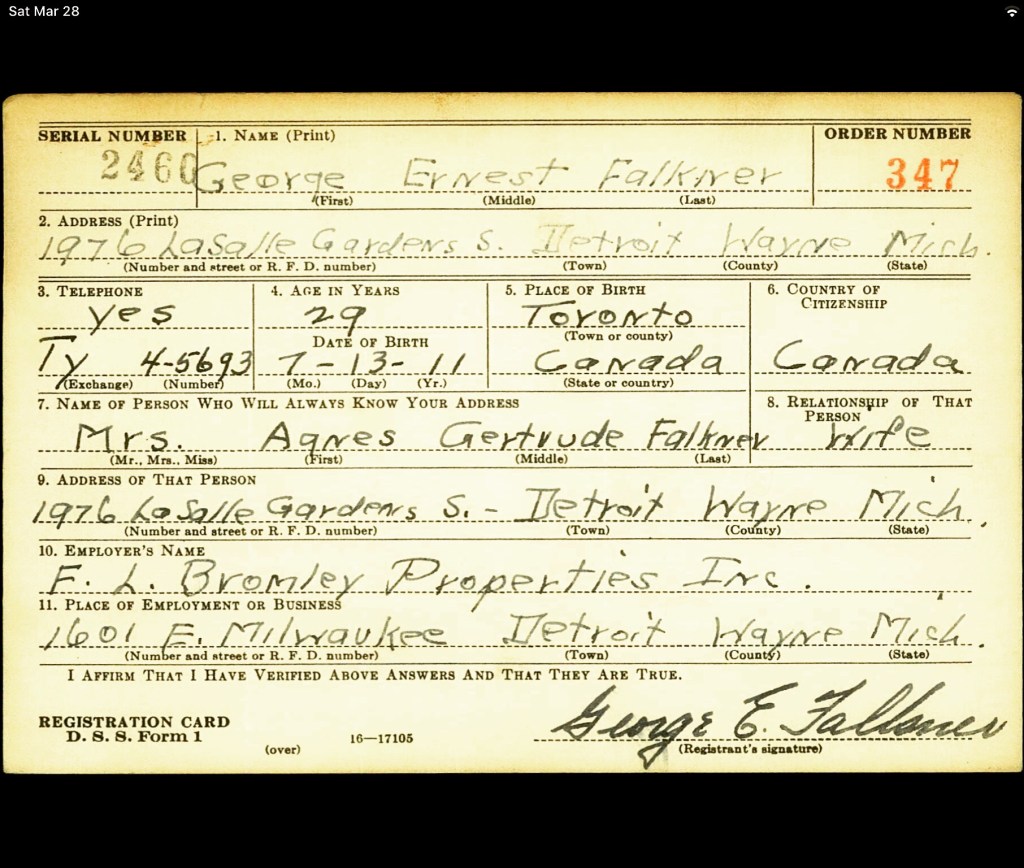 Sat Mar 28
SERIAL NUMBER 1. NAME (Print) ORDER NUMBER
2460 George Ernest Falkner 347
(First) (Middle) (Last)
2. ADDRESS (Print)
1976 LaSalle Gardens S. Detroit Wayne Mich.
(Number and street or R. F. D. number) (Town) (County) (State)
3. TELEPHONE 4. AGE IN YEARS 5. PLACE OF BIRTH 6. COUNTRY OF CITIZENSHIP
yes 29 Toronto
DATE OF BIRTH (Town or county)
Ty 4-5693 7-13-11 Canada Canada
(Exchange) (Number) (Mo.) (Day) (Yr.) (State or country)
7. NAME OF PERSON WHO WILL ALWAYS KNOW YOUR ADDRESS 8. RELATIONSHIP OF THAT PERSON
Mrs. Agnes Gertrude Falkner Wife
(Mr., Mrs., Miss) (First) (Middle) (Last)
9. ADDRESS OF THAT PERSON
1976 LaSalle Gardens S. - Detroit Wayne Mich.
(Number and street or R. F. D. number) (Town) (County) (State)
10. EMPLOYER'S NAME
F. L. Bromley Properties Inc.
11. PLACE OF EMPLOYMENT OR BUSINESS
1601 E. Milwaukee Detroit Wayne Mich.
(Number and street or R. F. D. number) (Town) (County) (State)
I AFFIRM THAT I HAVE VERIFIED ABOVE ANSWERS AND THAT THEY ARE TRUE.
REGISTRATION CARD George E. Falkner
D. S. S. Form 1 (over) 16—17105 (Registrant's signature)